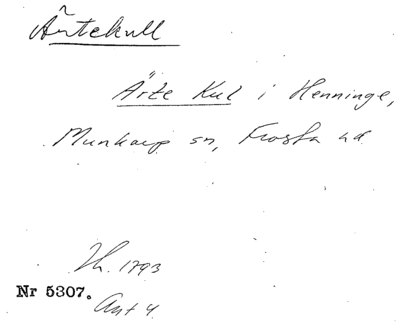 Ärtekull
Ärte Kul i Henninge,
Munkarp sn, Frosta hd
Th. 1793
Nr 5307.
Ant 4